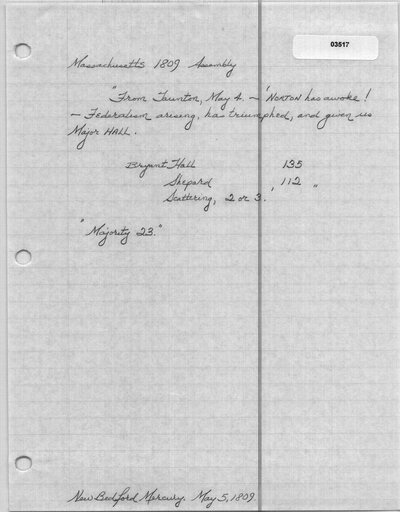 03517
Massachusetts 1809 Assembly
"From Taunton, May 4. — 'NORTON has awoke!
— Federalism arising, has triumphed, and given us
Major HALL.
Bryant Hall 135
Shepard 112
Scattering, 2 or 3.' "
"Majority 23."
New Bedford Mercury. May 5, 1809